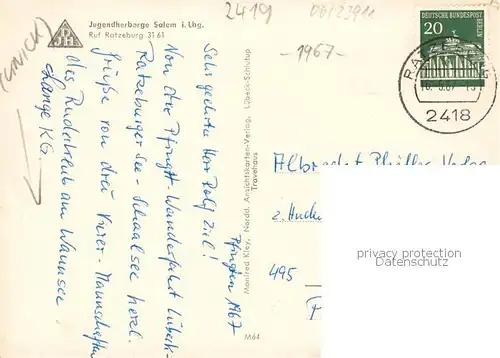 (UNICK)
Jugendherberge Salem i. Lbg.
Ruf Ratzeburg 31 61
2419
06123911
-1967-
DEUTSCHE BUNDESPOST
BERLIN
20
RATZE
2418
Pfingsten 1967
Sehr geehrter Herr Rolf Ziel!
Von der Pfingst-Wanderfahrt Lübeck-
Ratzeburger See - Schaalsee herzl.
Grüße von drei Vierer-Mannschaften
des Ruderklub am Wannsee.
Lange KG.
Manfred Kley, Nordd. Ansichtskarten-Verlag, Lübeck-Schlutup
Travehaus
M64
Albrecht Philler Verlag
z. Händen
495
privacy protection
Datenschutz